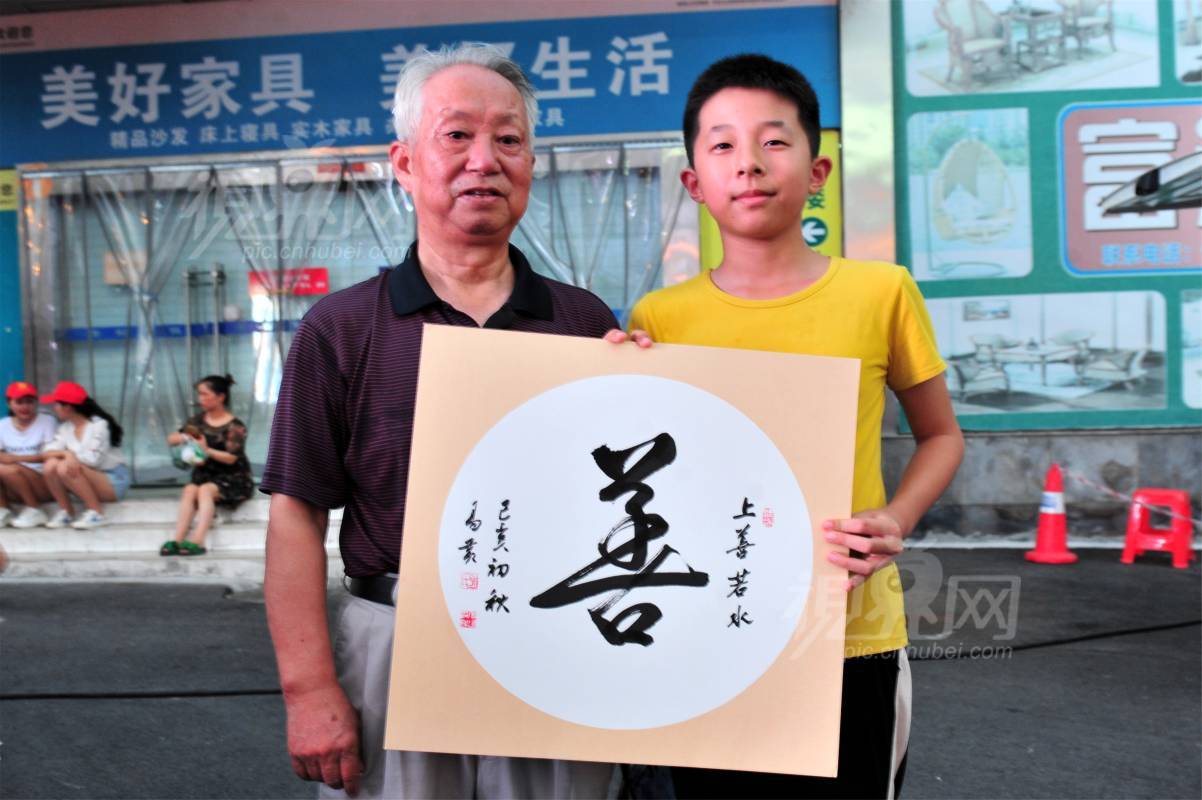 美好家具 美 生活
精品沙发 床上寝具 实木家具
家具
富
联系电话:
安
善
上善若水
己亥初秋
視界网
pic.cnhubei.com
視界网
pic.cnhubei.com